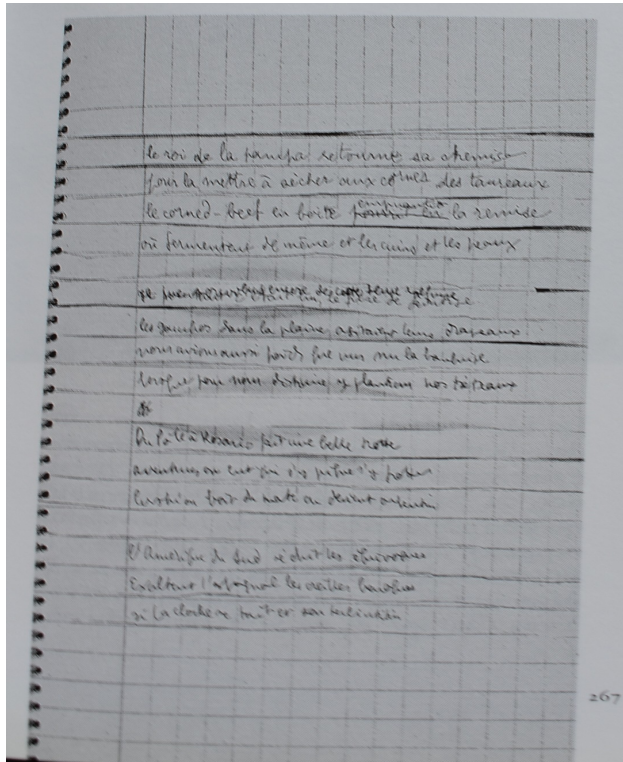 le roi de la pampa retourne sa chemise
pour la mettre à sécher aux cornes des taureaux
le corned-beef en boîte empuantit la remise
où fermentent de même et les cuirs et les peaux
les gauchos dans la plaine agitaient leurs drapeaux
nous avions aussi froid que nus sur la banquise
lorsque pour nous distraire y plantions nos tréteaux
Du Pôle à Rosario fait une belle trotte
aventures on eut qui s'y pique s'y frotte
lorsqu'on boit du maté on devient argentin
L'Amérique du Sud séduit les équivoques
Exaltent l'espagnol les oreilles baroques
si la cloche se tait et son terlintintin
267